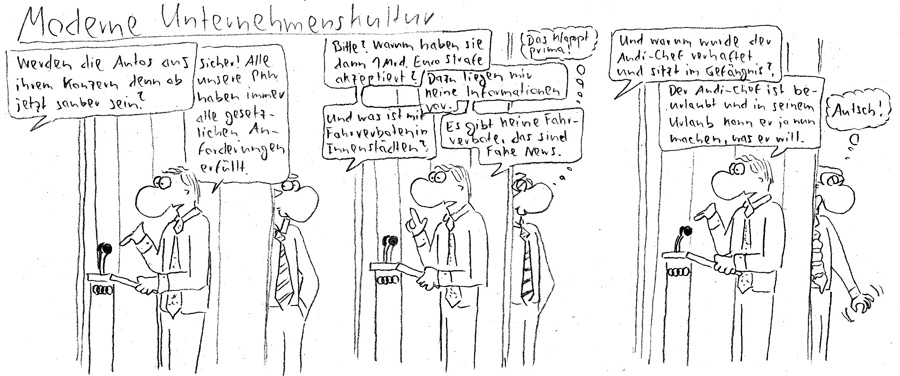 Moderne Unternehmenskultur
Werden die Autos aus
ihrem Konzern denn ab
jetzt sauber sein?
Sicher! Alle
unsere PKW
haben immer
alle gesetz-
lichen An-
forderungen
erfüllt.
Bitte? Warum haben sie
dann 1 Mrd. Euro Strafe
akzeptiert?
Dazu liegen mir
keine Informationen
vor.
Und was ist mit
Fahrverboten in
Innenstädten?
Es gibt keine Fahr-
verbote, das sind
Fake News.
Das klappt
prima!
Und warum wurde der
Audi-Chef verhaftet
und sitzt im Gefängnis?
Der Audi-Chef ist be-
urlaubt und in seinem
Urlaub kann er ja nun
machen, was er will.
Autsch!